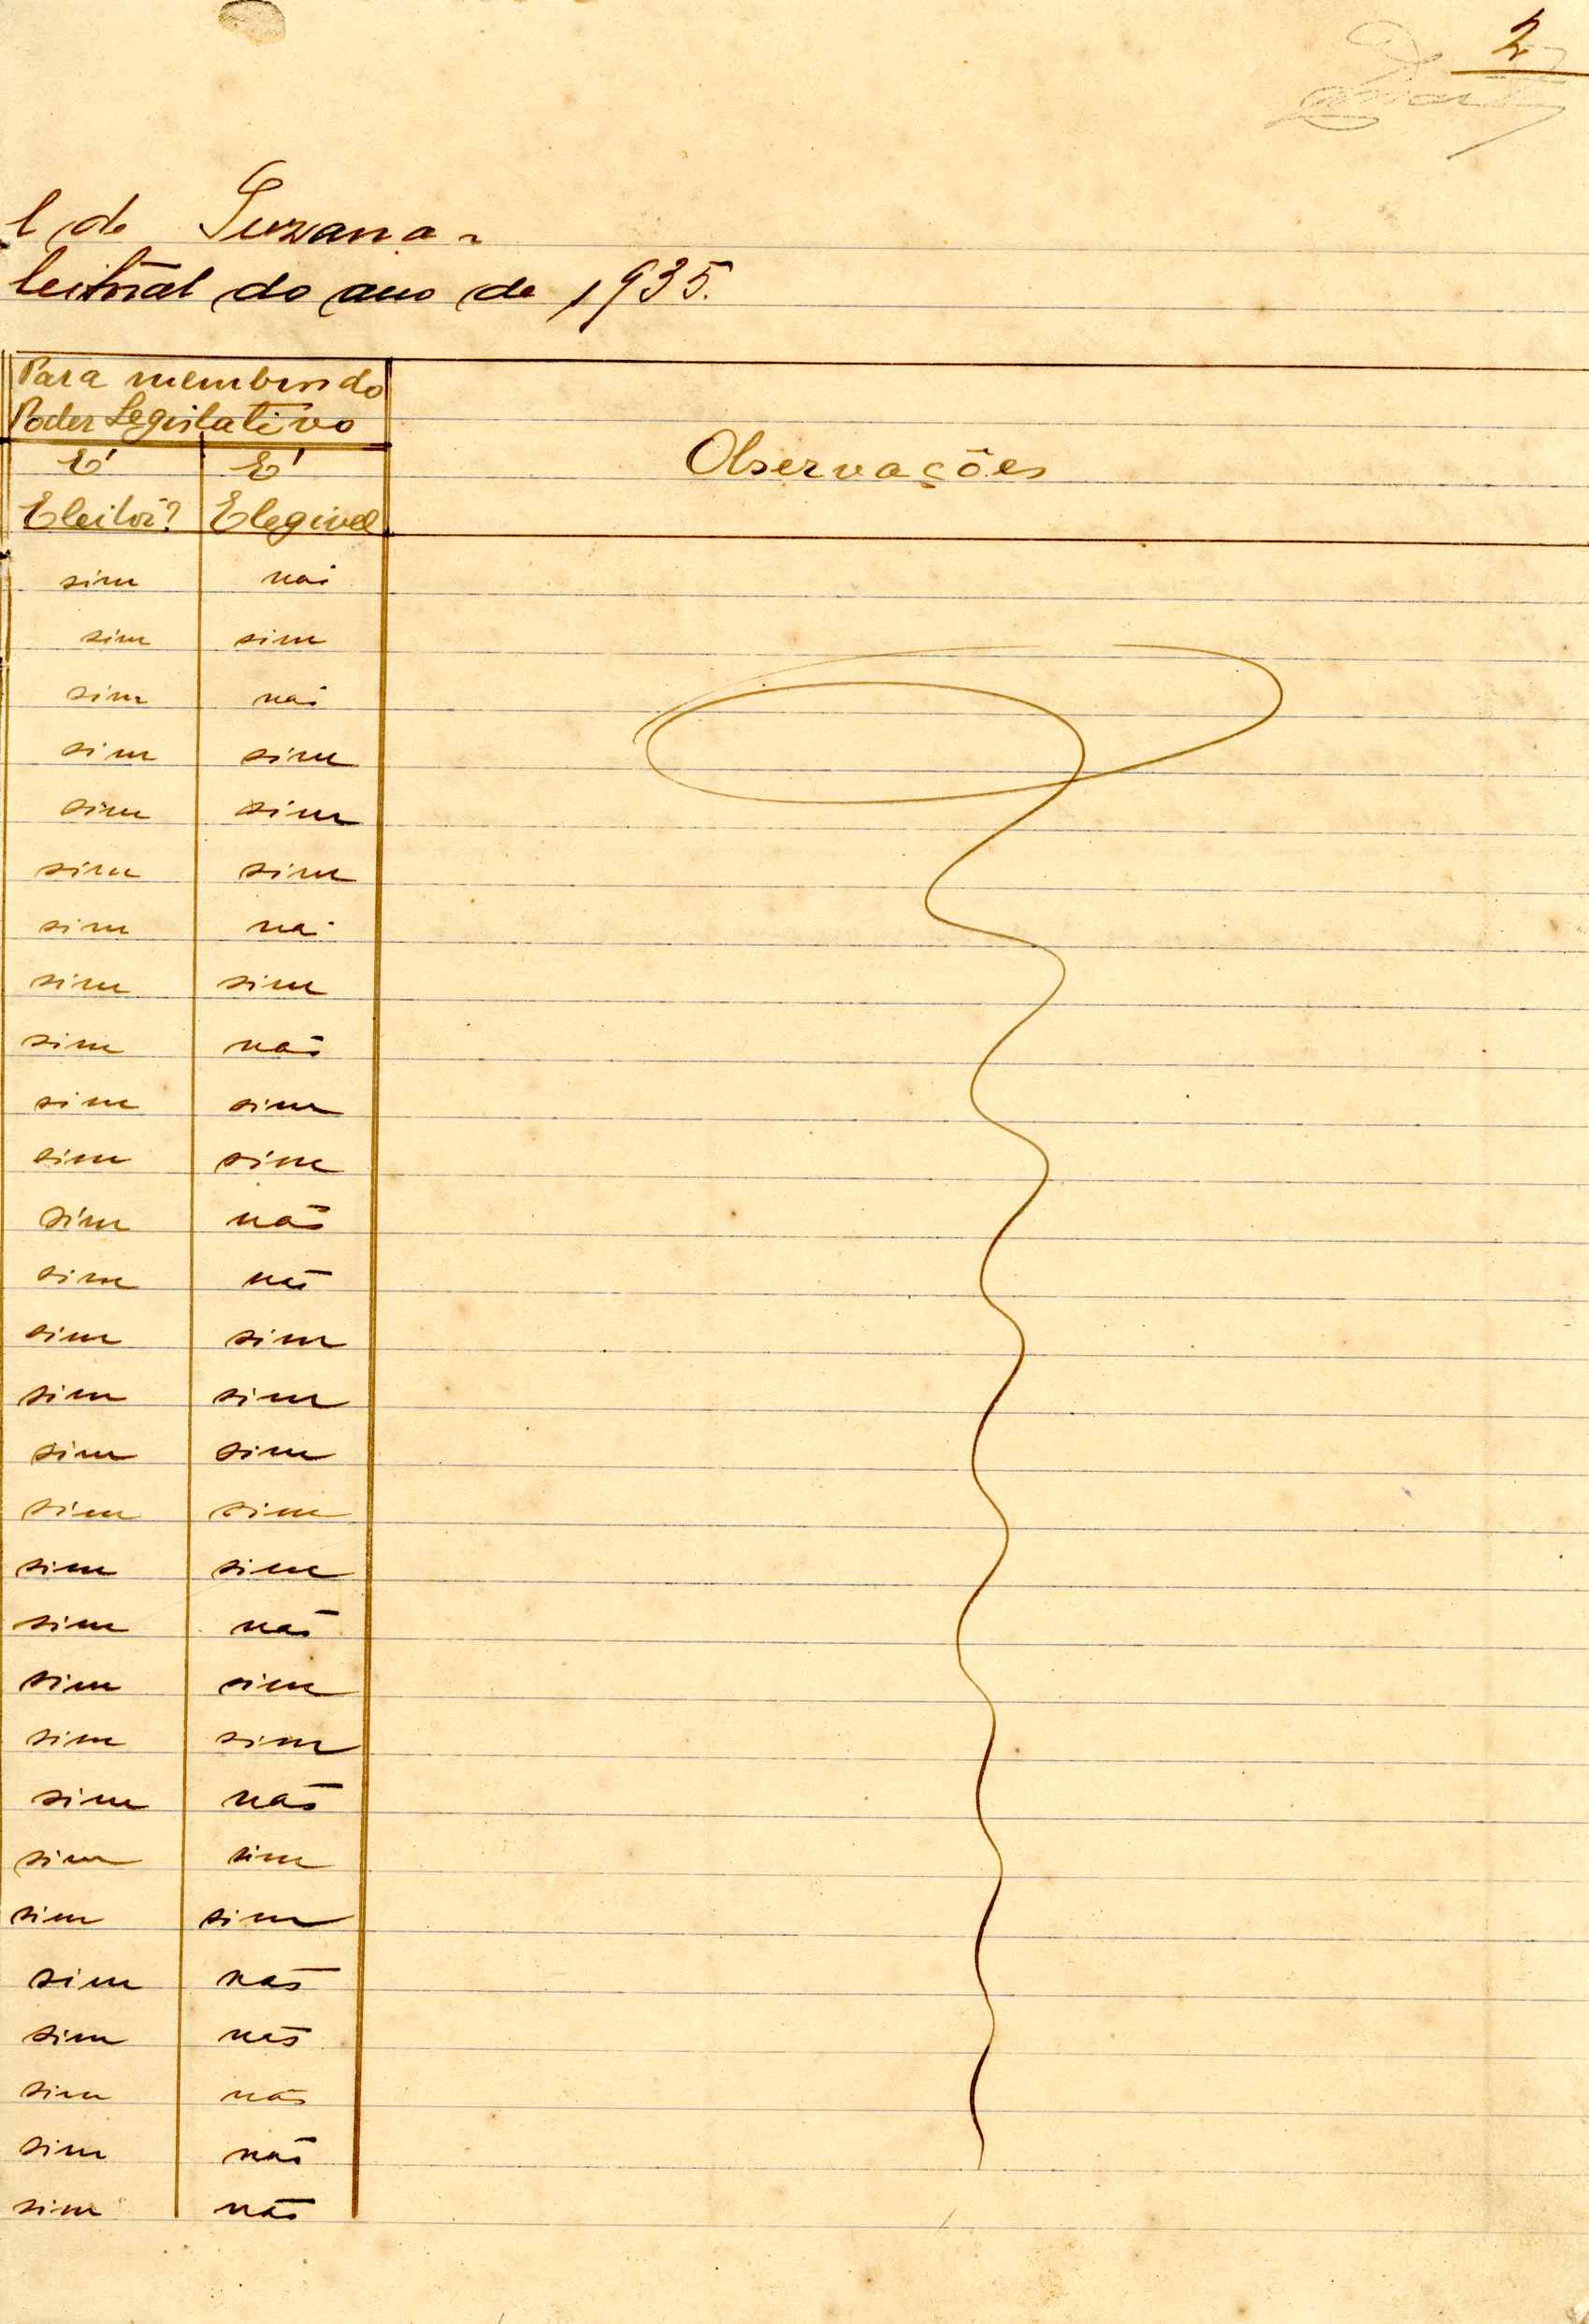 2
l de Suzana -
leitoral do ano de 1935.
Para membro do
Poder Legislativo
É É
Eleitor? Elegivel
Observações
sim não
sim sim
sim não
sim sim
sim sim
sim sim
sim não
sim sim
sim não
sim sim
sim sim
sim não
sim não
sim sim
sim sim
sim sim
sim sim
sim sim
sim não
sim sim
sim sim
sim não
sim sim
sim sim
sim não
sim não
sim não
sim não
sim não